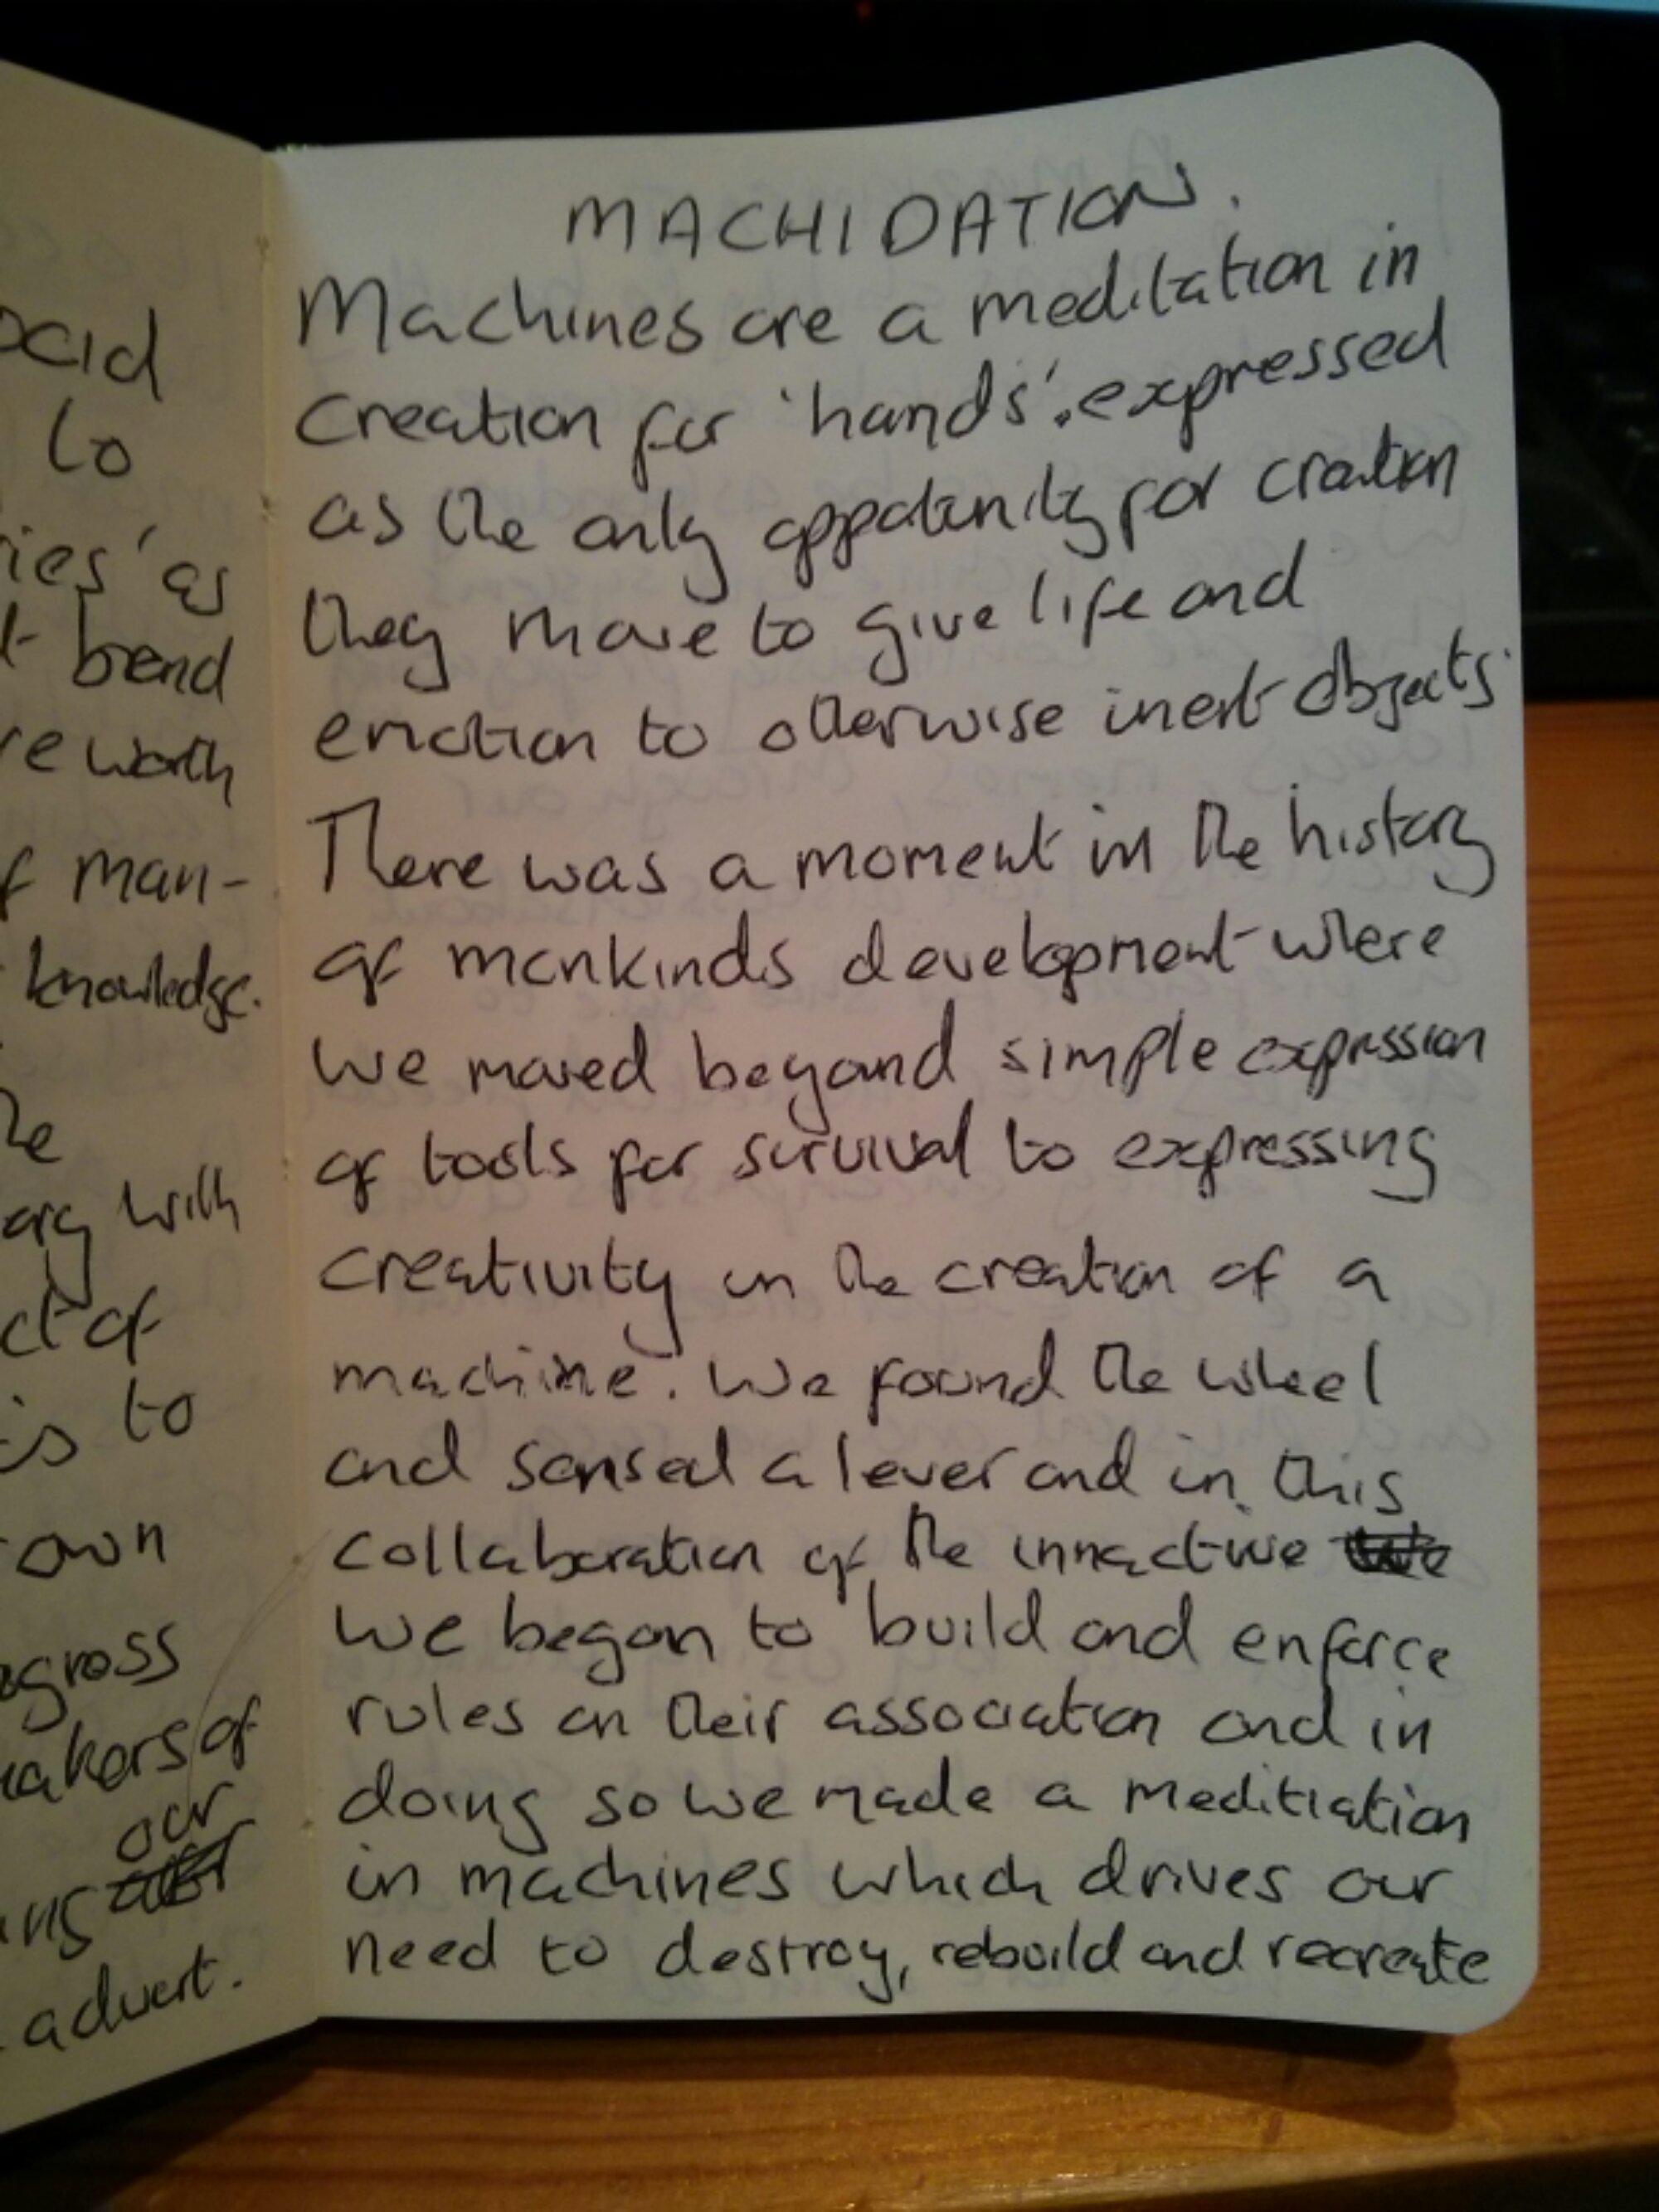 ocid
to
ries' as
t brend
re worth
f man-
knowledge.
he
ary with
ct of
is to
own
ogross
akers of
our
ing
advert.
MACHIDATION.
Machines are a meditation in
creation for 'hands'. expressed
as the only oppotunity for creation
they move to give life and
emotion to otherwise inert objects.
There was a moment in the history
of mankinds development where
we moved beyond simple expression
of tools for survival to expressing
creativity in the creation of a
machine. We found the wheel
and sensed a lever and in this
collaboration of the innactive
we began to build and enforce
rules on their association and in
doing so we made a meditiation
in machines which drives our
need to destroy, rebuild and recreate